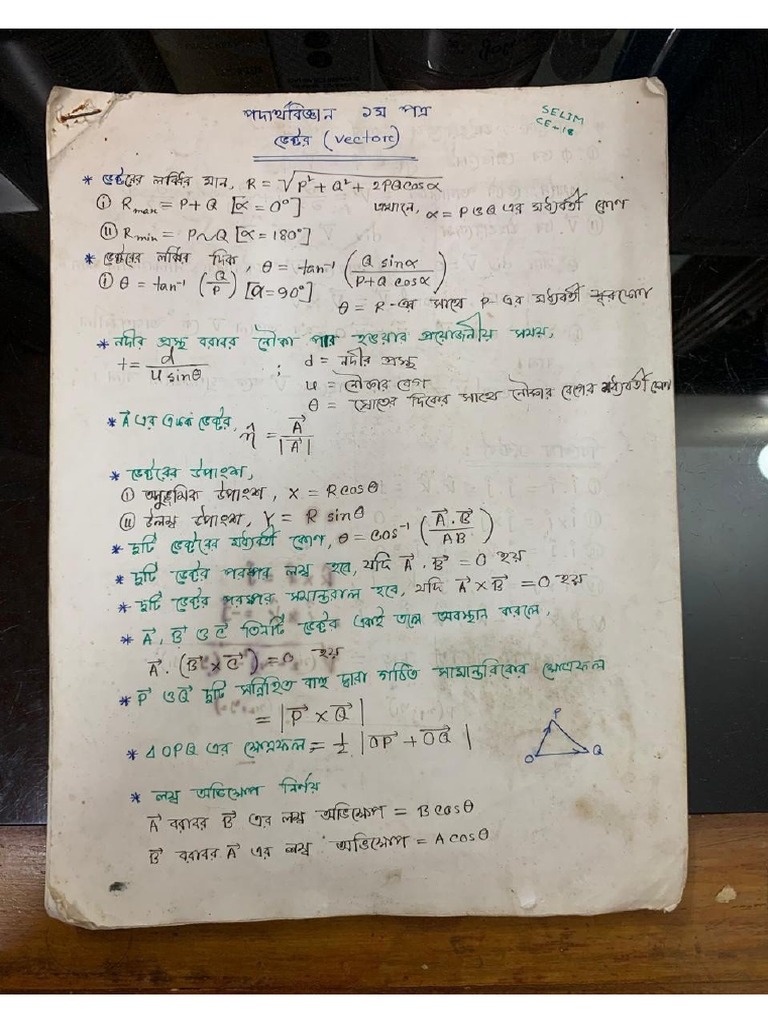 পদার্থবিজ্ঞান ১ম পত্র
SELIM
CE-18
ভেক্টর (Vector)
* ভেক্টরের লব্ধির মান, R = √P² + Q² + 2PQcosα
ⓘ Rmax = P+Q [α = 0°] এখানে, α = P ও Q এর মধ্যবর্তী কোণ
ⓘⓘ Rmin = P~Q [α = 180°]
* ভেক্টরের লব্ধির দিক, θ = tan⁻¹ (Q sinα / P+Q cosα)
ⓘ θ = tan⁻¹ (Q/P) [α = 90°] θ = R-এর সাথে P-এর মধ্যবর্তী
* নদীর প্রস্থ বরাবর নৌকা পার হওয়ার প্রয়োজনীয় সময়,
t = d / u sinθ ; d = নদীর প্রস্থ
u = নৌকার বেগ
θ = স্রোতের দিকের সাথে নৌকার বেগের মধ্যবর্তী কোণ
* A⃗ এর একক ভেক্টর, η̂ = A⃗ / |A⃗|
* ভেক্টরের উপাংশ,
ⓘ অনুভূমিক উপাংশ, X = R cosθ
ⓘⓘ উলম্ব উপাংশ, Y = R sinθ
* দুটি ভেক্টরের মধ্যবর্তী কোণ, θ = cos⁻¹ (A⃗.B⃗ / AB)
* দুটি ভেক্টর পরস্পর লম্ব হবে, যদি A⃗ . B⃗ = 0 হয়
* দুটি ভেক্টর পরস্পর সমান্তরাল হবে, যদি A⃗ × B⃗ = 0 হয়
* A⃗, B⃗ ও C⃗ তিনটি ভেক্টর একই তলে অবস্থান করলে,
A⃗ . (B⃗ × C⃗) = 0 হয়
* P⃗ ও Q⃗ দুটি সন্নিহিত বাহু দ্বারা গঠিত সামান্তরিকের ক্ষেত্রফল
= |P⃗ × Q⃗|
* Δ OPQ এর ক্ষেত্রফল = ½ |OP⃗ + OQ⃗|
P
O Q
* লম্ব অভিক্ষেপ নির্ণয়
A⃗ বরাবর B⃗ এর লম্ব অভিক্ষেপ = B cosθ
B⃗ বরাবর A⃗ এর লম্ব অভিক্ষেপ = A cosθ